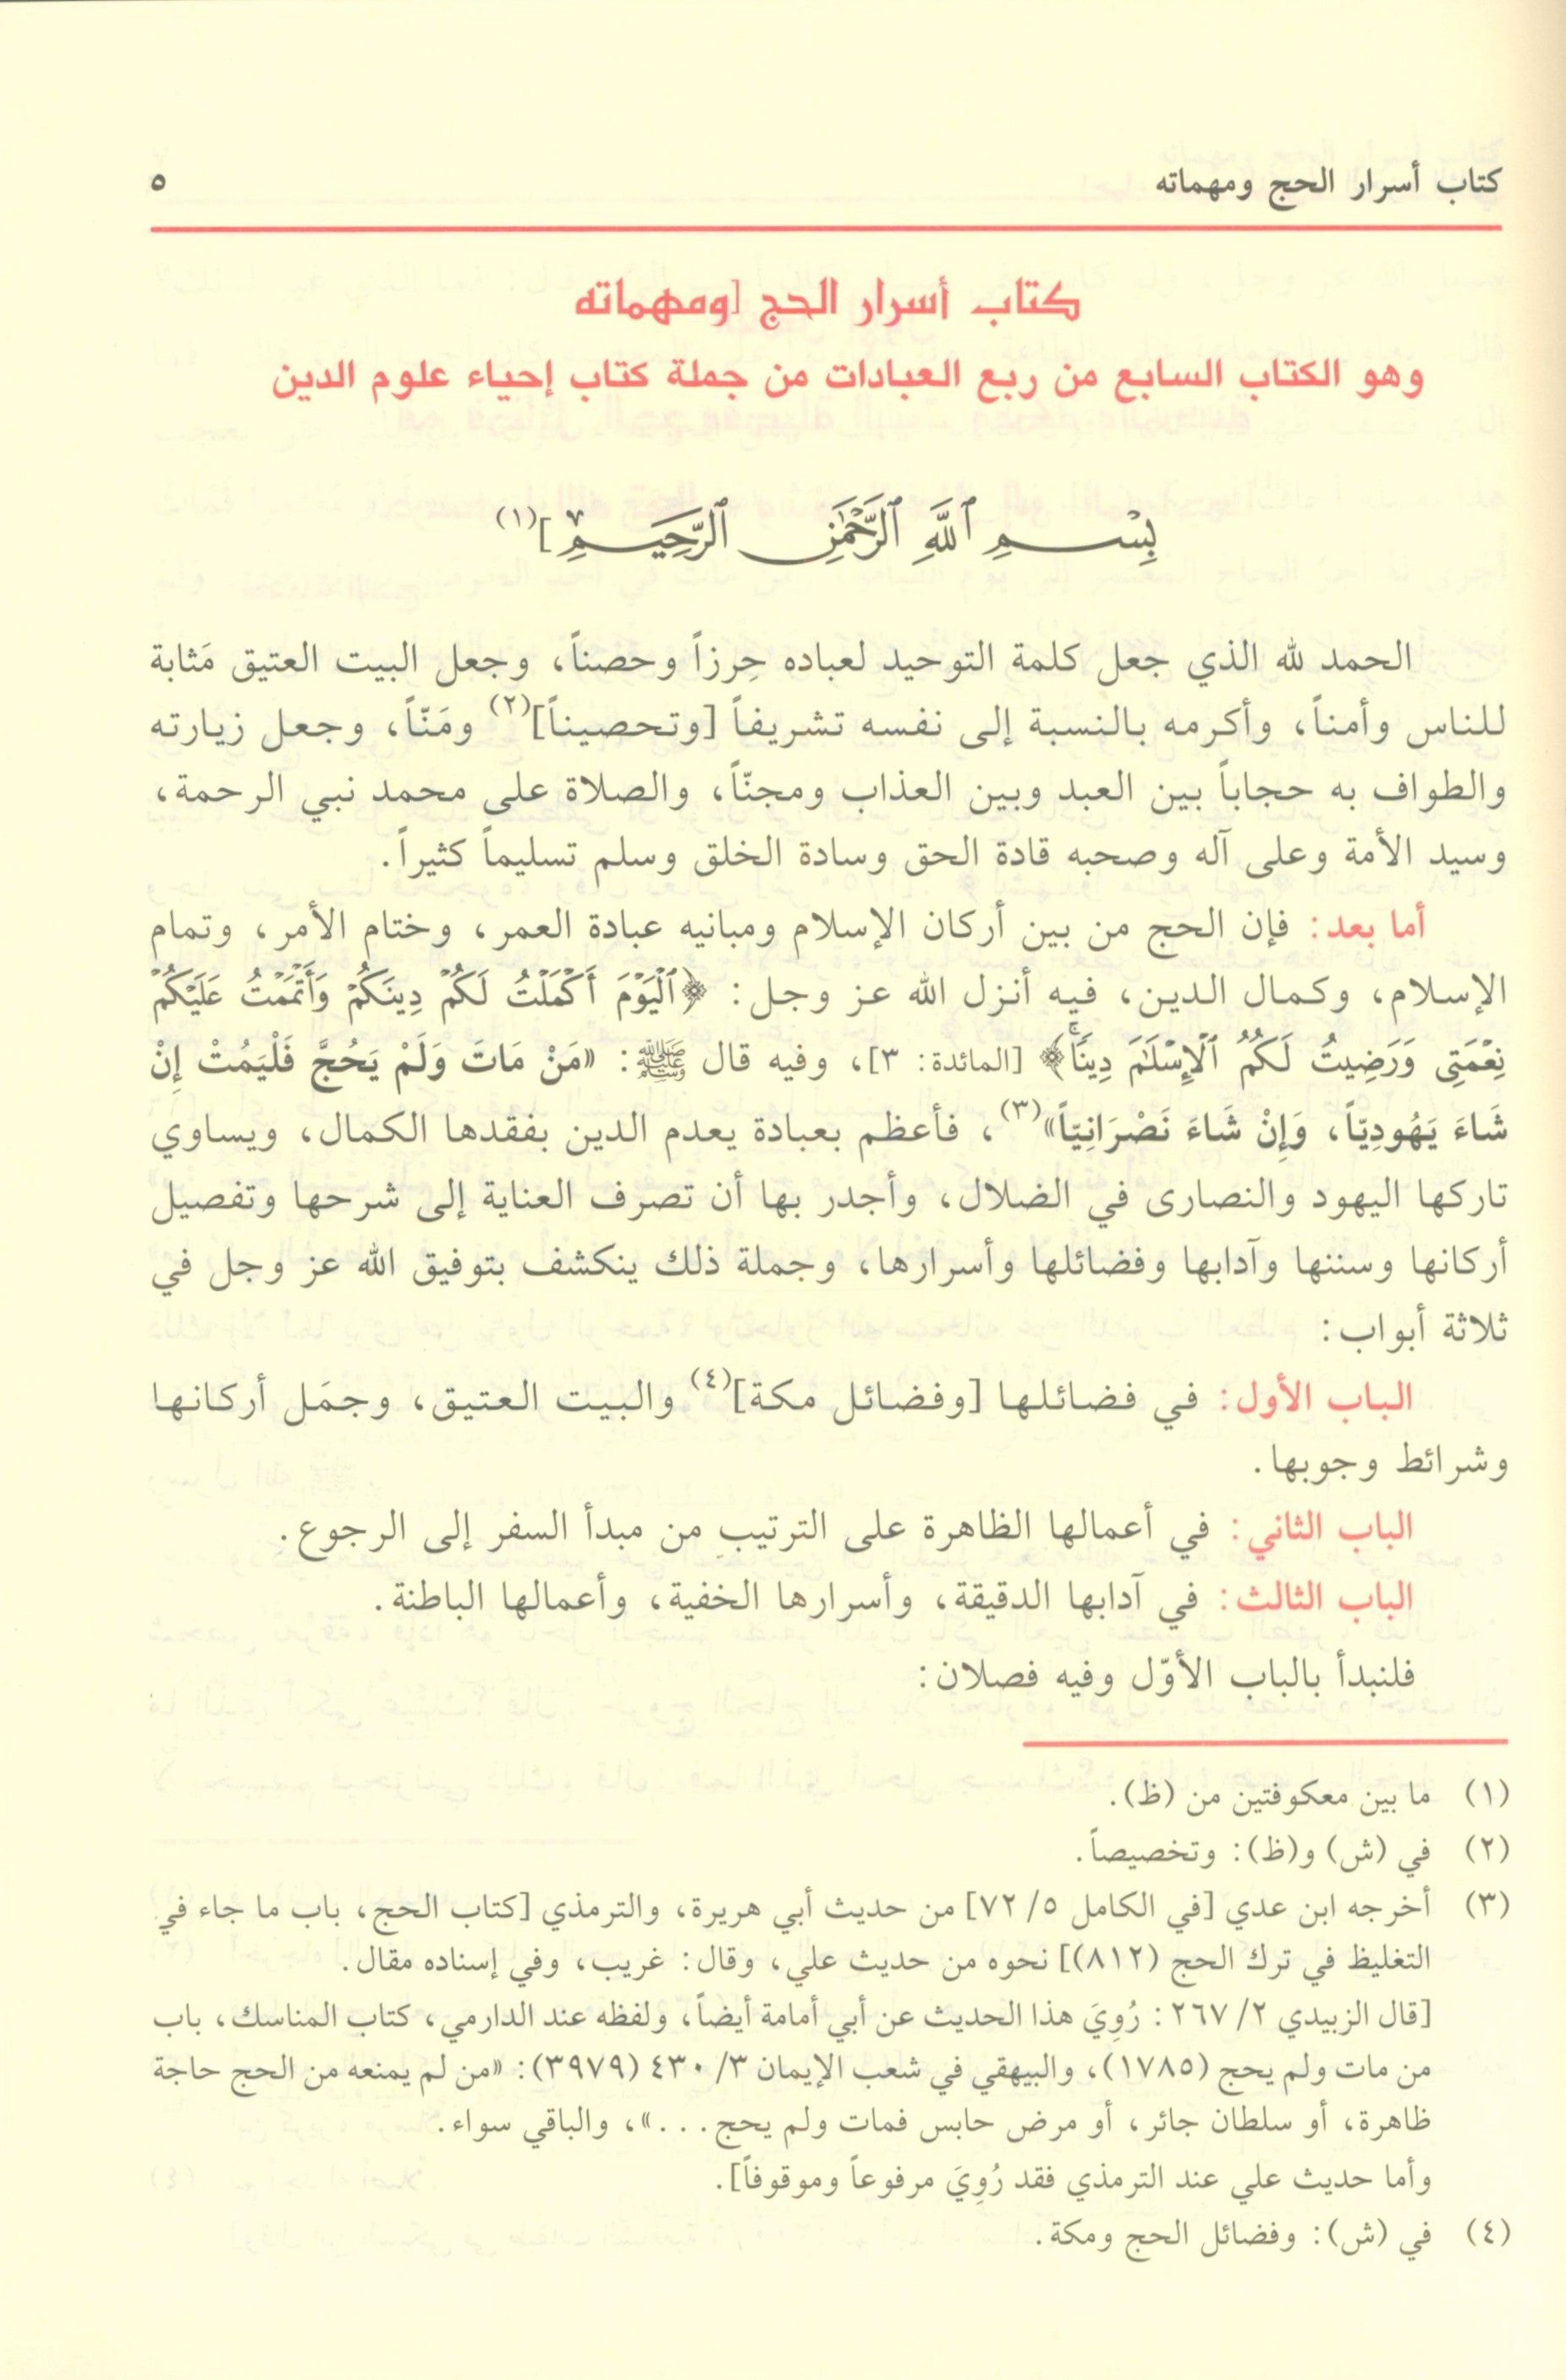 كتاب أسرار الحج ومهماته
٥
كتاب أسرار الحج [ومهماته
وهو الكتاب السابع من ربع العبادات من جملة كتاب إحياء علوم الدين
بِسْمِ ٱللَّهِ ٱلرَّحْمَٰنِ ٱلرَّحِيمِ](١)
الحمد لله الذي جعل كلمة التوحيد لعباده حِرزاً وحصناً، وجعل البيت العتيق مَثابة
للناس وأمناً، وأكرمه بالنسبة إلى نفسه تشريفاً [وتحصيناً](٢) ومَنّاً، وجعل زيارته
والطواف به حجاباً بين العبد وبين العذاب ومجنّاً، والصلاة على محمد نبي الرحمة،
وسيد الأمة وعلى آله وصحبه قادة الحق وسادة الخلق وسلم تسليماً كثيراً.
أما بعد: فإن الحج من بين أركان الإسلام ومبانيه عبادة العمر، وختام الأمر، وتمام
الإسلام، وكمال الدين، فيه أنزل الله عز وجل: ﴿ٱلْيَوْمَ أَكْمَلْتُ لَكُمْ دِينَكُمْ وَأَتْمَمْتُ عَلَيْكُمْ
نِعْمَتِى وَرَضِيتُ لَكُمُ ٱلْإِسْلَٰمَ دِينًاۚ﴾ [المائدة: ٣]، وفيه قال ﷺ: «مَنْ مَاتَ وَلَمْ يَحُجَّ فَلْيَمُتْ إِنْ
شَاءَ يَهُودِيّاً، وَإِنْ شَاءَ نَصْرَانِيّاً»(٣)، فأعظم بعبادة يعدم الدين بفقدها الكمال، ويساوي
تاركها اليهود والنصارى في الضلال، وأجدر بها أن تصرف العناية إلى شرحها وتفصيل
أركانها وسننها وآدابها وفضائلها وأسرارها، وجملة ذلك ينكشف بتوفيق الله عز وجل في
ثلاثة أبواب:
الباب الأول: في فضائلها [وفضائل مكة](٤) والبيت العتيق، وجمَل أركانها
وشرائط وجوبها.
الباب الثاني: في أعمالها الظاهرة على الترتيب من مبدأ السفر إلى الرجوع.
الباب الثالث: في آدابها الدقيقة، وأسرارها الخفية، وأعمالها الباطنة.
فلنبدأ بالباب الأوّل وفيه فصلان:
(١) ما بين معكوفتين من (ظ).
(٢) في (ش) و(ظ): وتخصيصاً.
(٣) أخرجه ابن عدي [في الكامل ٥/ ٧٢] من حديث أبي هريرة، والترمذي [كتاب الحج، باب ما جاء في
التغليظ في ترك الحج (٨١٢)] نحوه من حديث علي، وقال: غريب، وفي إسناده مقال.
[قال الزبيدي ٢/ ٢٦٧: رُوِيَ هذا الحديث عن أبي أمامة أيضاً، ولفظه عند الدارمي، كتاب المناسك، باب
من مات ولم يحج (١٧٨٥)، والبيهقي في شعب الإيمان ٣/ ٤٣٠ (٣٩٧٩): «من لم يمنعه من الحج حاجة
ظاهرة، أو سلطان جائر، أو مرض حابس فمات ولم يحج...»، والباقي سواء.
وأما حديث علي عند الترمذي فقد رُوِيَ مرفوعاً وموقوفاً].
(٤) في (ش): وفضائل الحج ومكة.